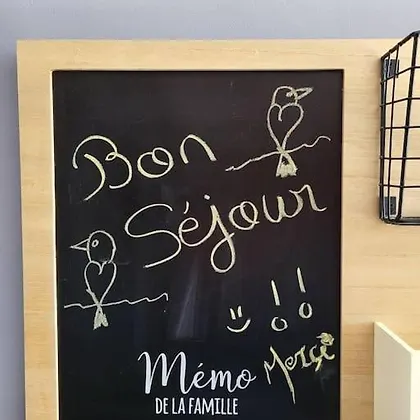 Bon
Séjour
!!
Merci
Mémo
DE LA FAMILLE